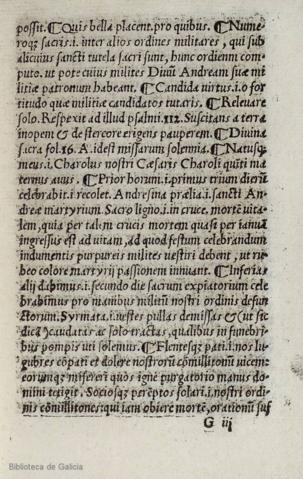 possit. ¶Quis bella placent. pro quibus. ¶Nume-
roq; sacris. i. inter alios ordines militares, qui sub
alicuius sancti tutela sacri sunt, hunc ordinem com-
puto. ut pote cuius milites Divũ Andream suæ mi
litiæ patronum habeant. ¶Candida virtus. i. o for
titudo quæ militiæ candidatos tutaris. ¶Relevare
solo. Respexit ad illud psalmi. 112. Suscitans a terra
inopem & de stercore erigens pauperem. ¶Divina
sacra fol. 16. A. idest missarum solemnia. ¶Natusq;
meus. i. Charolus nostri Cæsaris Charoli quĩti ma
ternus avus. ¶Prior horum. i. primus trium dierũ
celebrabit. i recolet. Andresina prælia. i. sancti An-
dreæ martyrium. Sacro ligno. i. in cruce, mortẽ vita-
lem, quia per talem crucis mortem quasi per ianuã
ingressus est ad vitam, ad quod festum celebrandum
indumentis purpureis milites vestiri debent, ut ru-
beo colore martyrij passionem innuant. ¶Inferias
alij dabimus. i. secundo die sacrum expiatorium cele
brabimus pro manibus militũ nostri ordinis defun
ctorum. Syrmata. i. vestes pullas demissas & (ut sic
dicã) caudatas ac solo tractas, qualibus in funebri-
bus pompis uti solemus. ¶Flentesq; pati. i. nos lu
gubres cõpati et dolere nostrorũ cõmilitonũ vicem
eorumq; misereri quos igne purgatorio manus do-
mini tetigit. Sociosq; peréptos solari. i. nostri ordi
nis cõmilitones: qui iam obiere mortẽ, orationũ suf
G iij
Biblioteca de Galicia